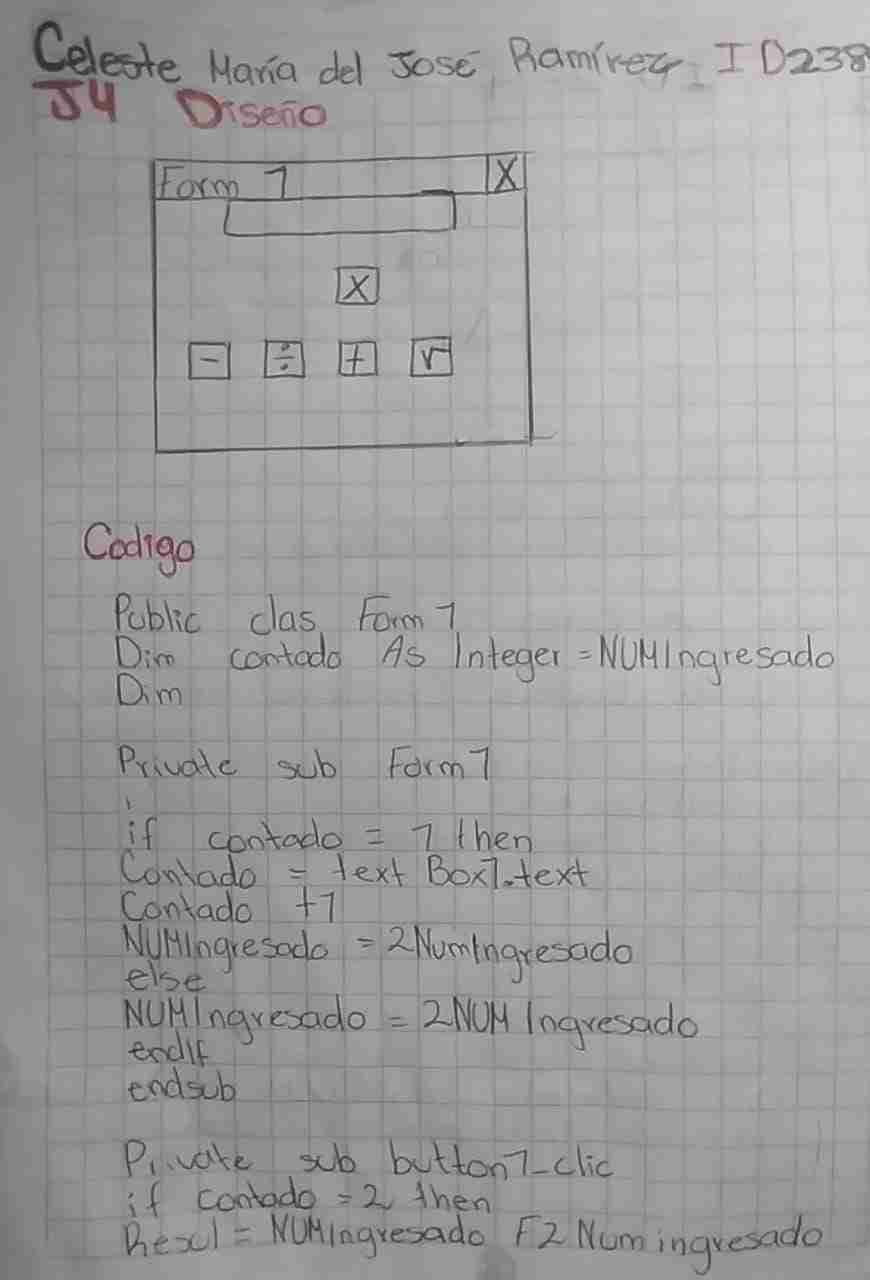 Celeste María del José Ramírez ID238
J4 Diseño
Form 1 X
X
- ÷ + √
Codigo
Public clas Form 1
Dim contado As Integer = NUMIngresado
Dim
Private sub Form 1
if contado = 1 then
Contado = text Box1.text
Contado +1
NUMIngresado = 2NumIngresado
else
NUMIngresado = 2NUM Ingresado
endIf
endsub
Private sub button1_clic
if contado = 2 then
Resul = NUMIngresado F2 Num ingresado